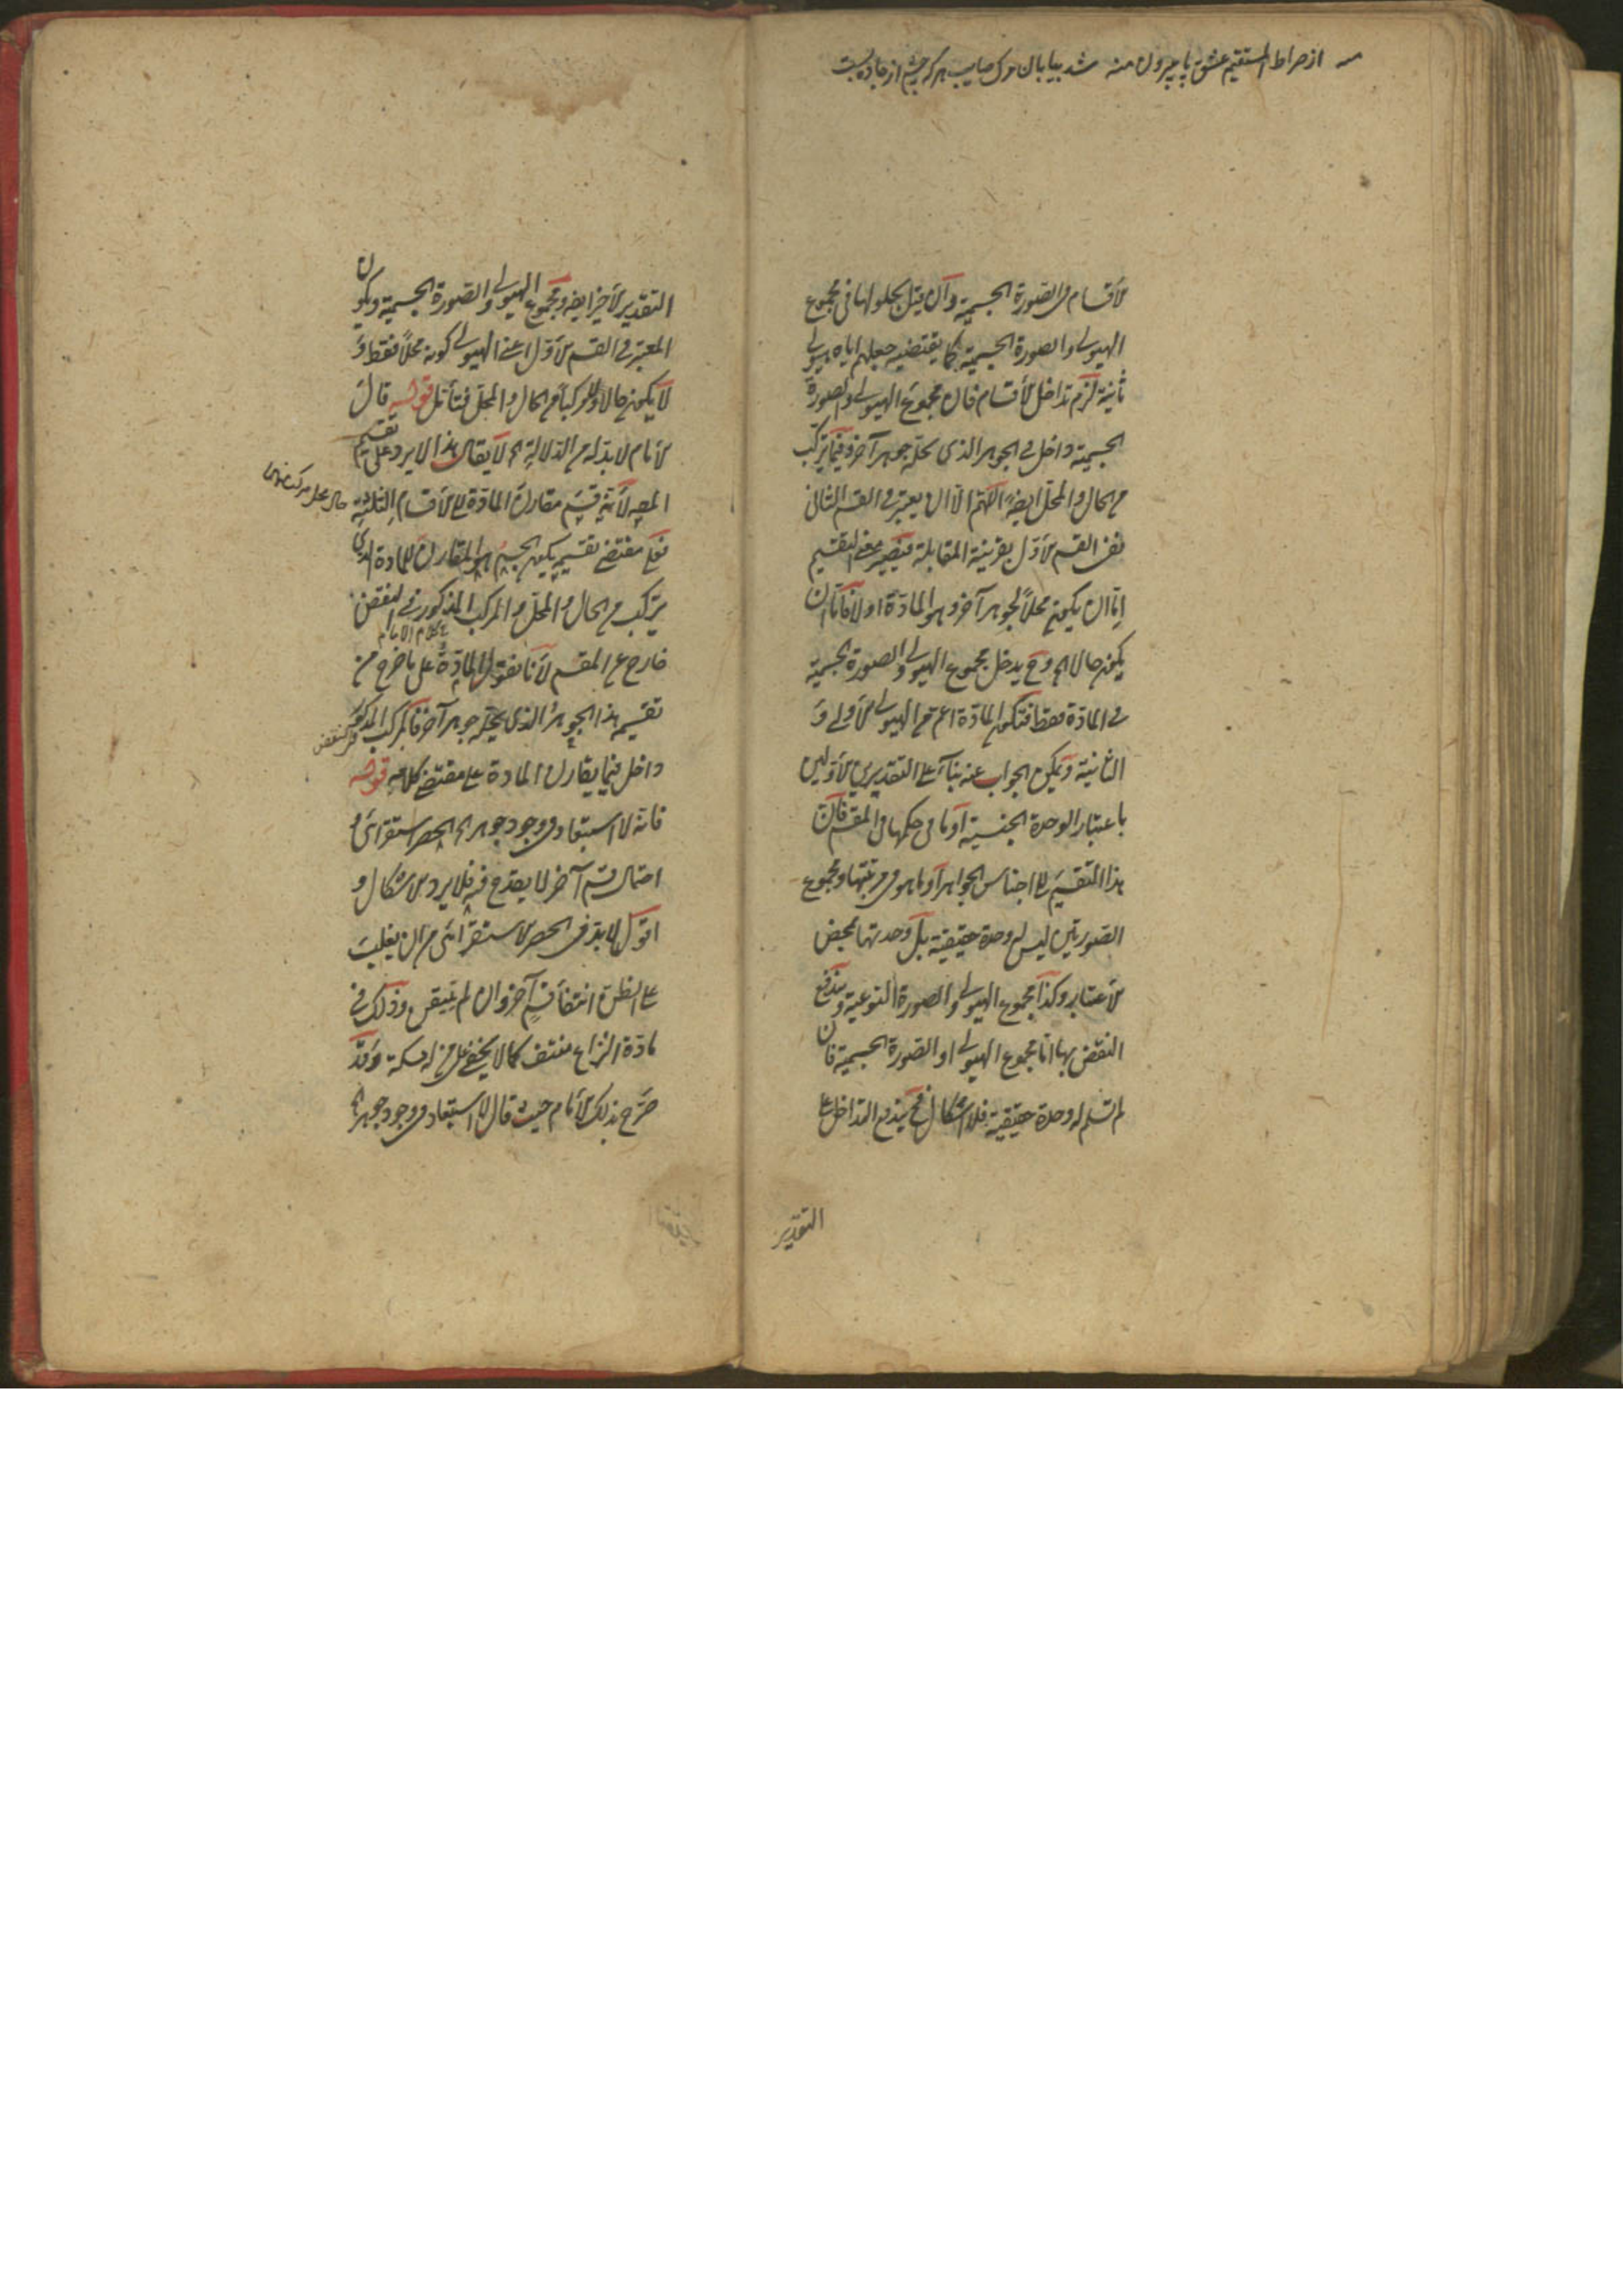 از صراط المستقیم عشق پا بیرون منه شد بیابان مرگ صایب هر که چشم از جاده بست
الأقسام في الصورة الجسمية وان قيل بحلولها في مجموع
الهيولى والصورة الجسمية كما يقتضيه جعلهم اياه هيولى
ثانية لزم تداخل الأقسام فان مجموع الهيولى والصورة
الجسمية داخل في الجوهر الذي يحله جوهر آخر وفيما يتركب
من الحال والمحل ايضا اللهم الا ان يعتبر في القسم الثاني
نفي القسم الأول بقرينة المقابلة فيصير معنى التقسيم
اما ان يكون محلا لجوهر آخر وهو المادة او لا فاما ان
يكون حالا الخ وح يدخل مجموع الهيولى والصورة الجسمية
في المادة فقط فتكون المادة اعم من الهيولى الأولى و
الثانية ويمكن الجواب عنه بناء على التقديرين الأولين
باعتبار الوحدة الجنسية او ما في حكمها في المقسم فان
هذا التقسيم الى اجناس الجواهر او ما هو في مرتبتها ومجموع
الصورتين ليس له وحدة حقيقية بل وحدتها بمحض
الأعتبار وكذا مجموع الهيولى والصورة النوعية ويندفع
النقض بها اما مجموع الهيولى او الصورة الجسمية فان
لم تسلم له وحدة حقيقية فلا اشكال فح يندفع التداخل على
التقدير
التقدير الأخير ايضا ومجموع الهيولى والصورة الجسمية ويكون
المعتبر في القسم الأول اعني الهيولى كونه محلا فقط و
لا يكون حالا ولا مركبا من الحال والمحل فتأمل قوله قال
الأمام لا بد له من الدلالة الخ لا يقال هذا لا يرد على تقسيم
المص لأنه قسم مقارن المادة الى الأقسام الثلثة
فعلى مقتضى تقسيمه يكون الجسم هو المقارن للمادة الذي
يتركب من الحال والمحل والمركب المذكور في النقض
كلام الامام
خارج عن المقسم لأنا نقول المادة على ما خرج من
تقسيمه هذا الجوهر الذي يحله جوهر آخر فالمركب المذكور
في النقض
داخل فيما يقارن المادة على مقتضى كلامه قوله
فانه لا استبعاد في وجود جوهر الخ الحصر استقرائي و
احتمال قسم آخر لا يقدح فيه فلا يرد الأشكال و
اقول لا بد في الحصر الأستقرائي من ان يغلب
على الظن انتفاء قسم آخر وان لم يتيقن وذلك في
مادة النزاع منتف كما لا يخفى على من له مسكة وقد
صرح بذلك الأمام حيث قال لا استبعاد في وجود جوهر الخ